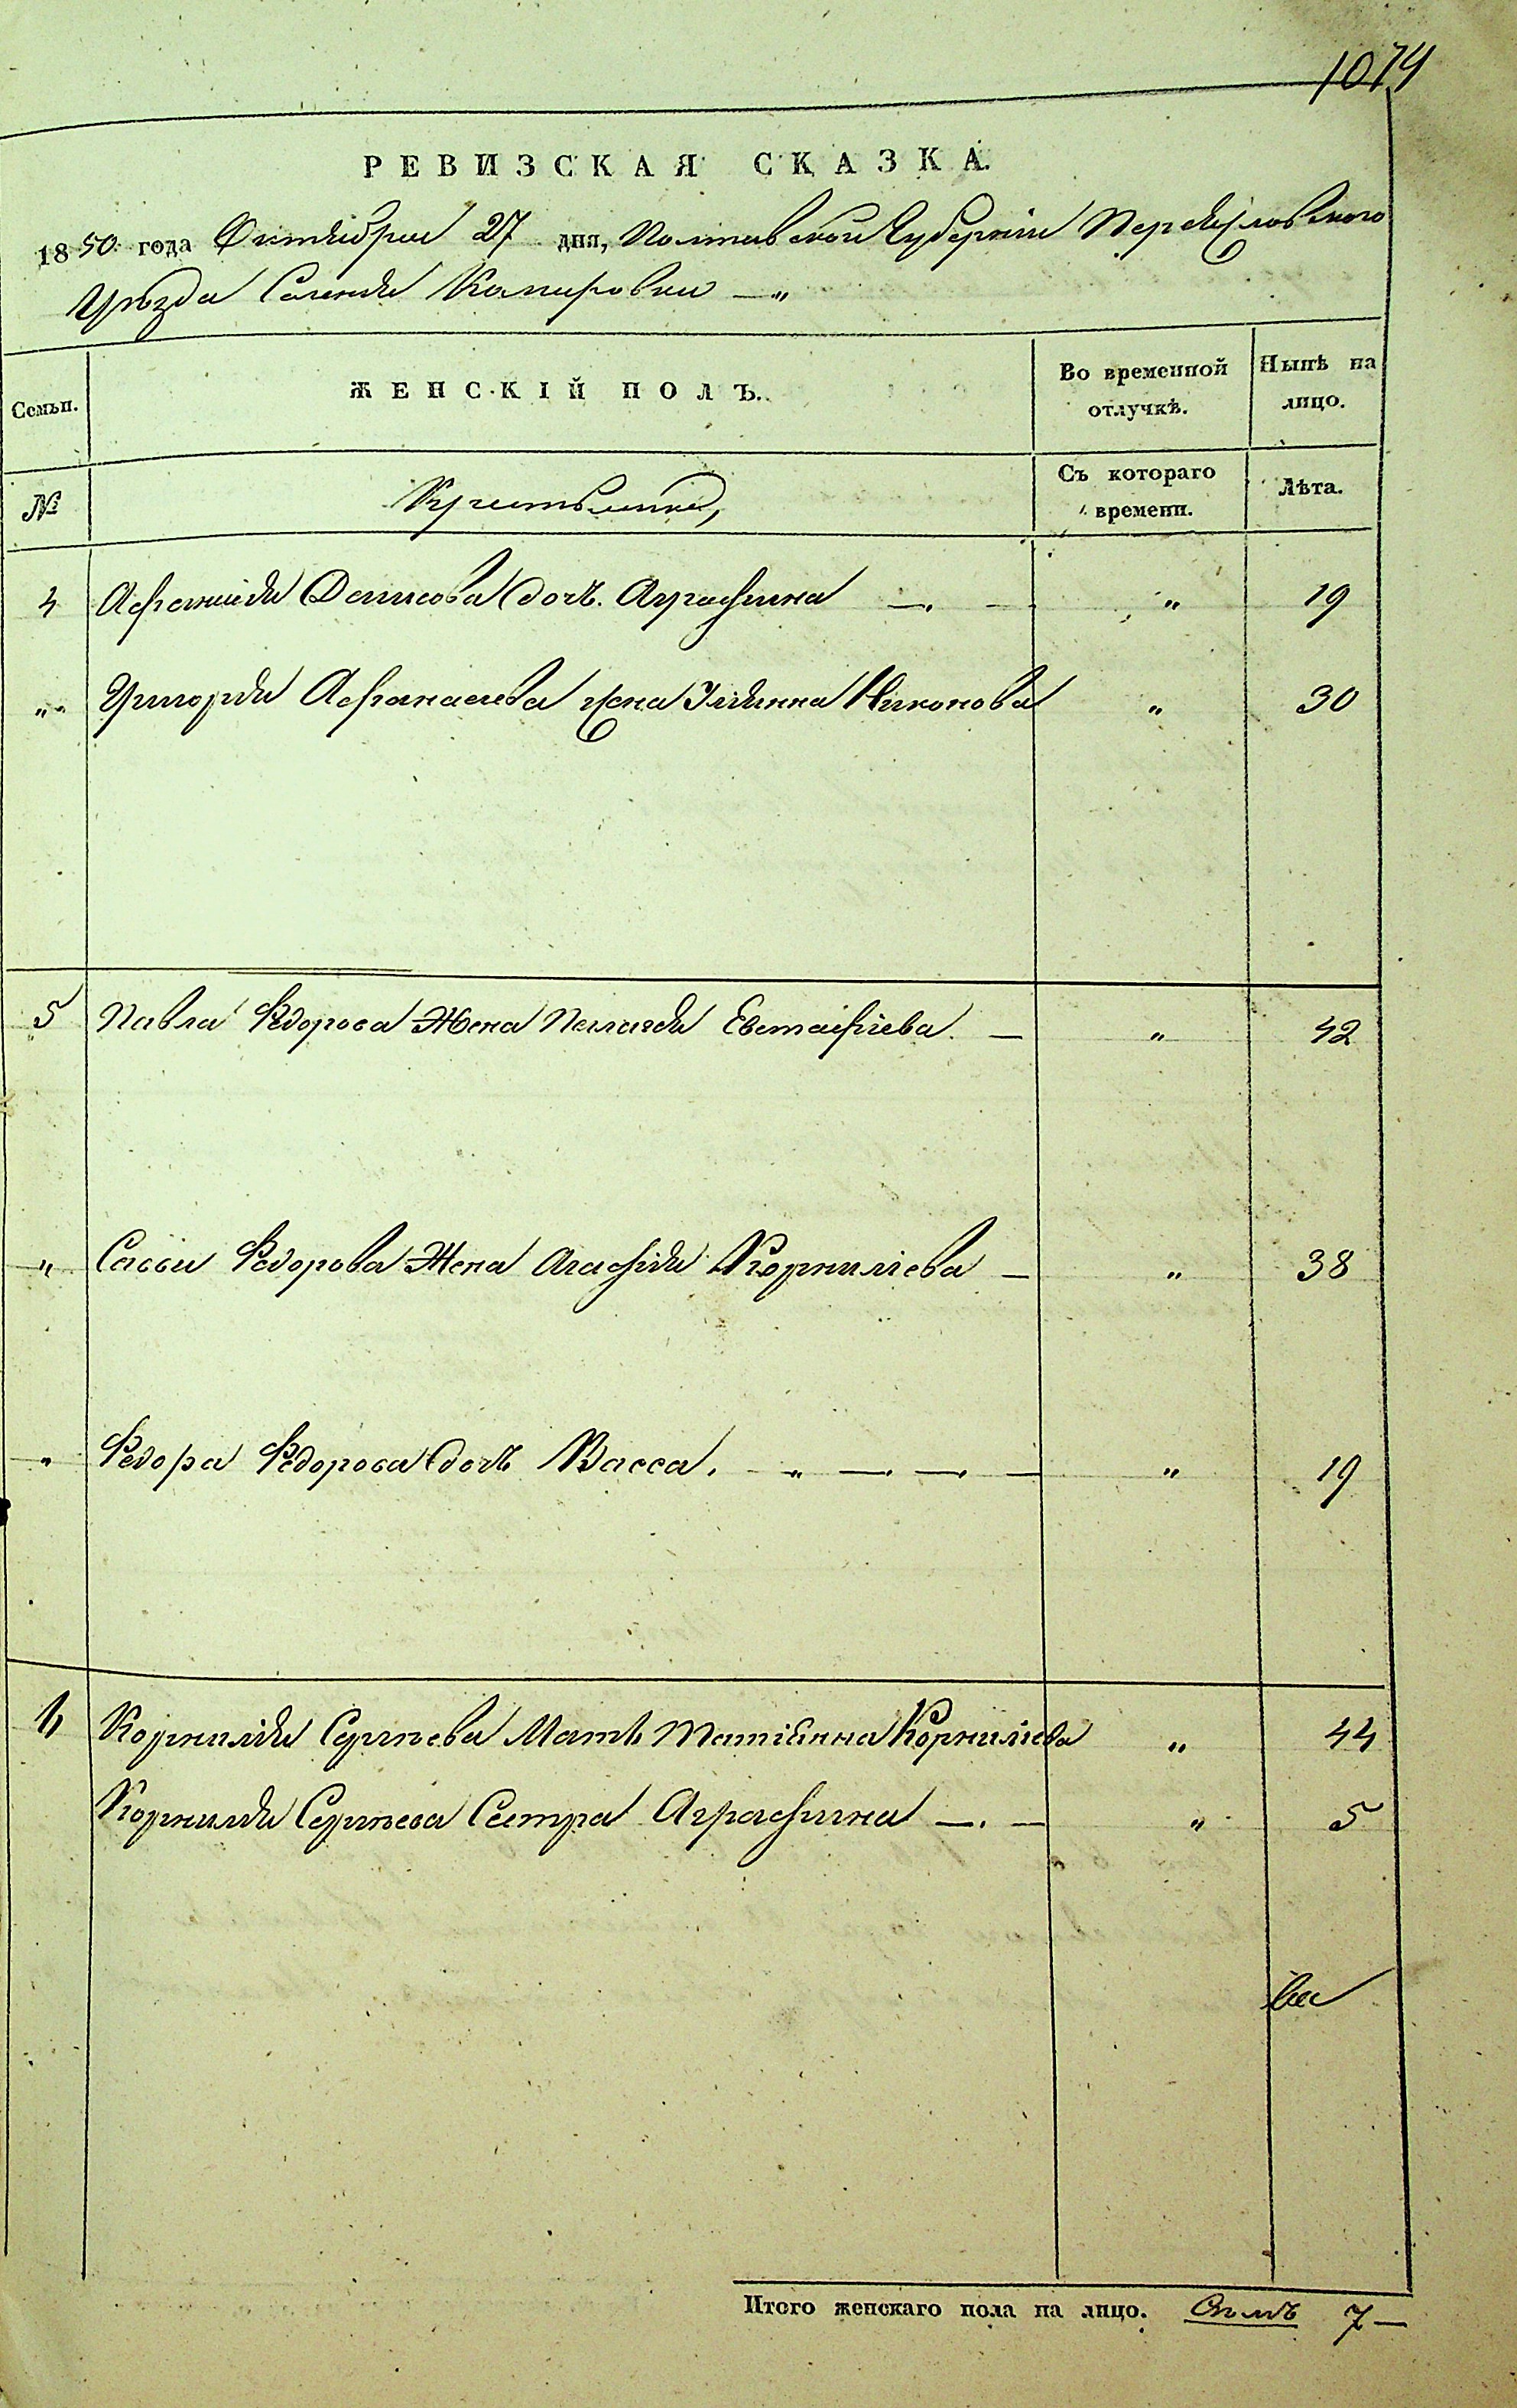 1074
РЕВИЗСКАЯ СКАЗКА.
1850 года Октября 27 дня, Полтавской Губерніи Переяславскаго
Уѣзда Селенія
Семьи. ЖЕНСКІЙ ПОЛЪ. Во временной отлучкѣ. Нынѣ на лицо.
№ Крестьяне, Съ котораго времени. Лѣта.
4 Афанасія Денисова дочь. Аграфина —. — „ 19
„ Григорія Афанасьева жена Уліянна Никонова „ 30
5 Павла Федорова Жена Пелагія Евстафіева. — „ 42
„ Савы Федорова Жена Агафія Корниліева — „ 38
„ Федора Федорова дочь Васса. „ —. —. — „ 19
6 Корнилія Сергѣева Мать Татіянна Корниліева „ 44
Корнилія Сергѣева Сестра Аграфина —. — „ 5
Итого женскаго пола на лицо. Семь 7—